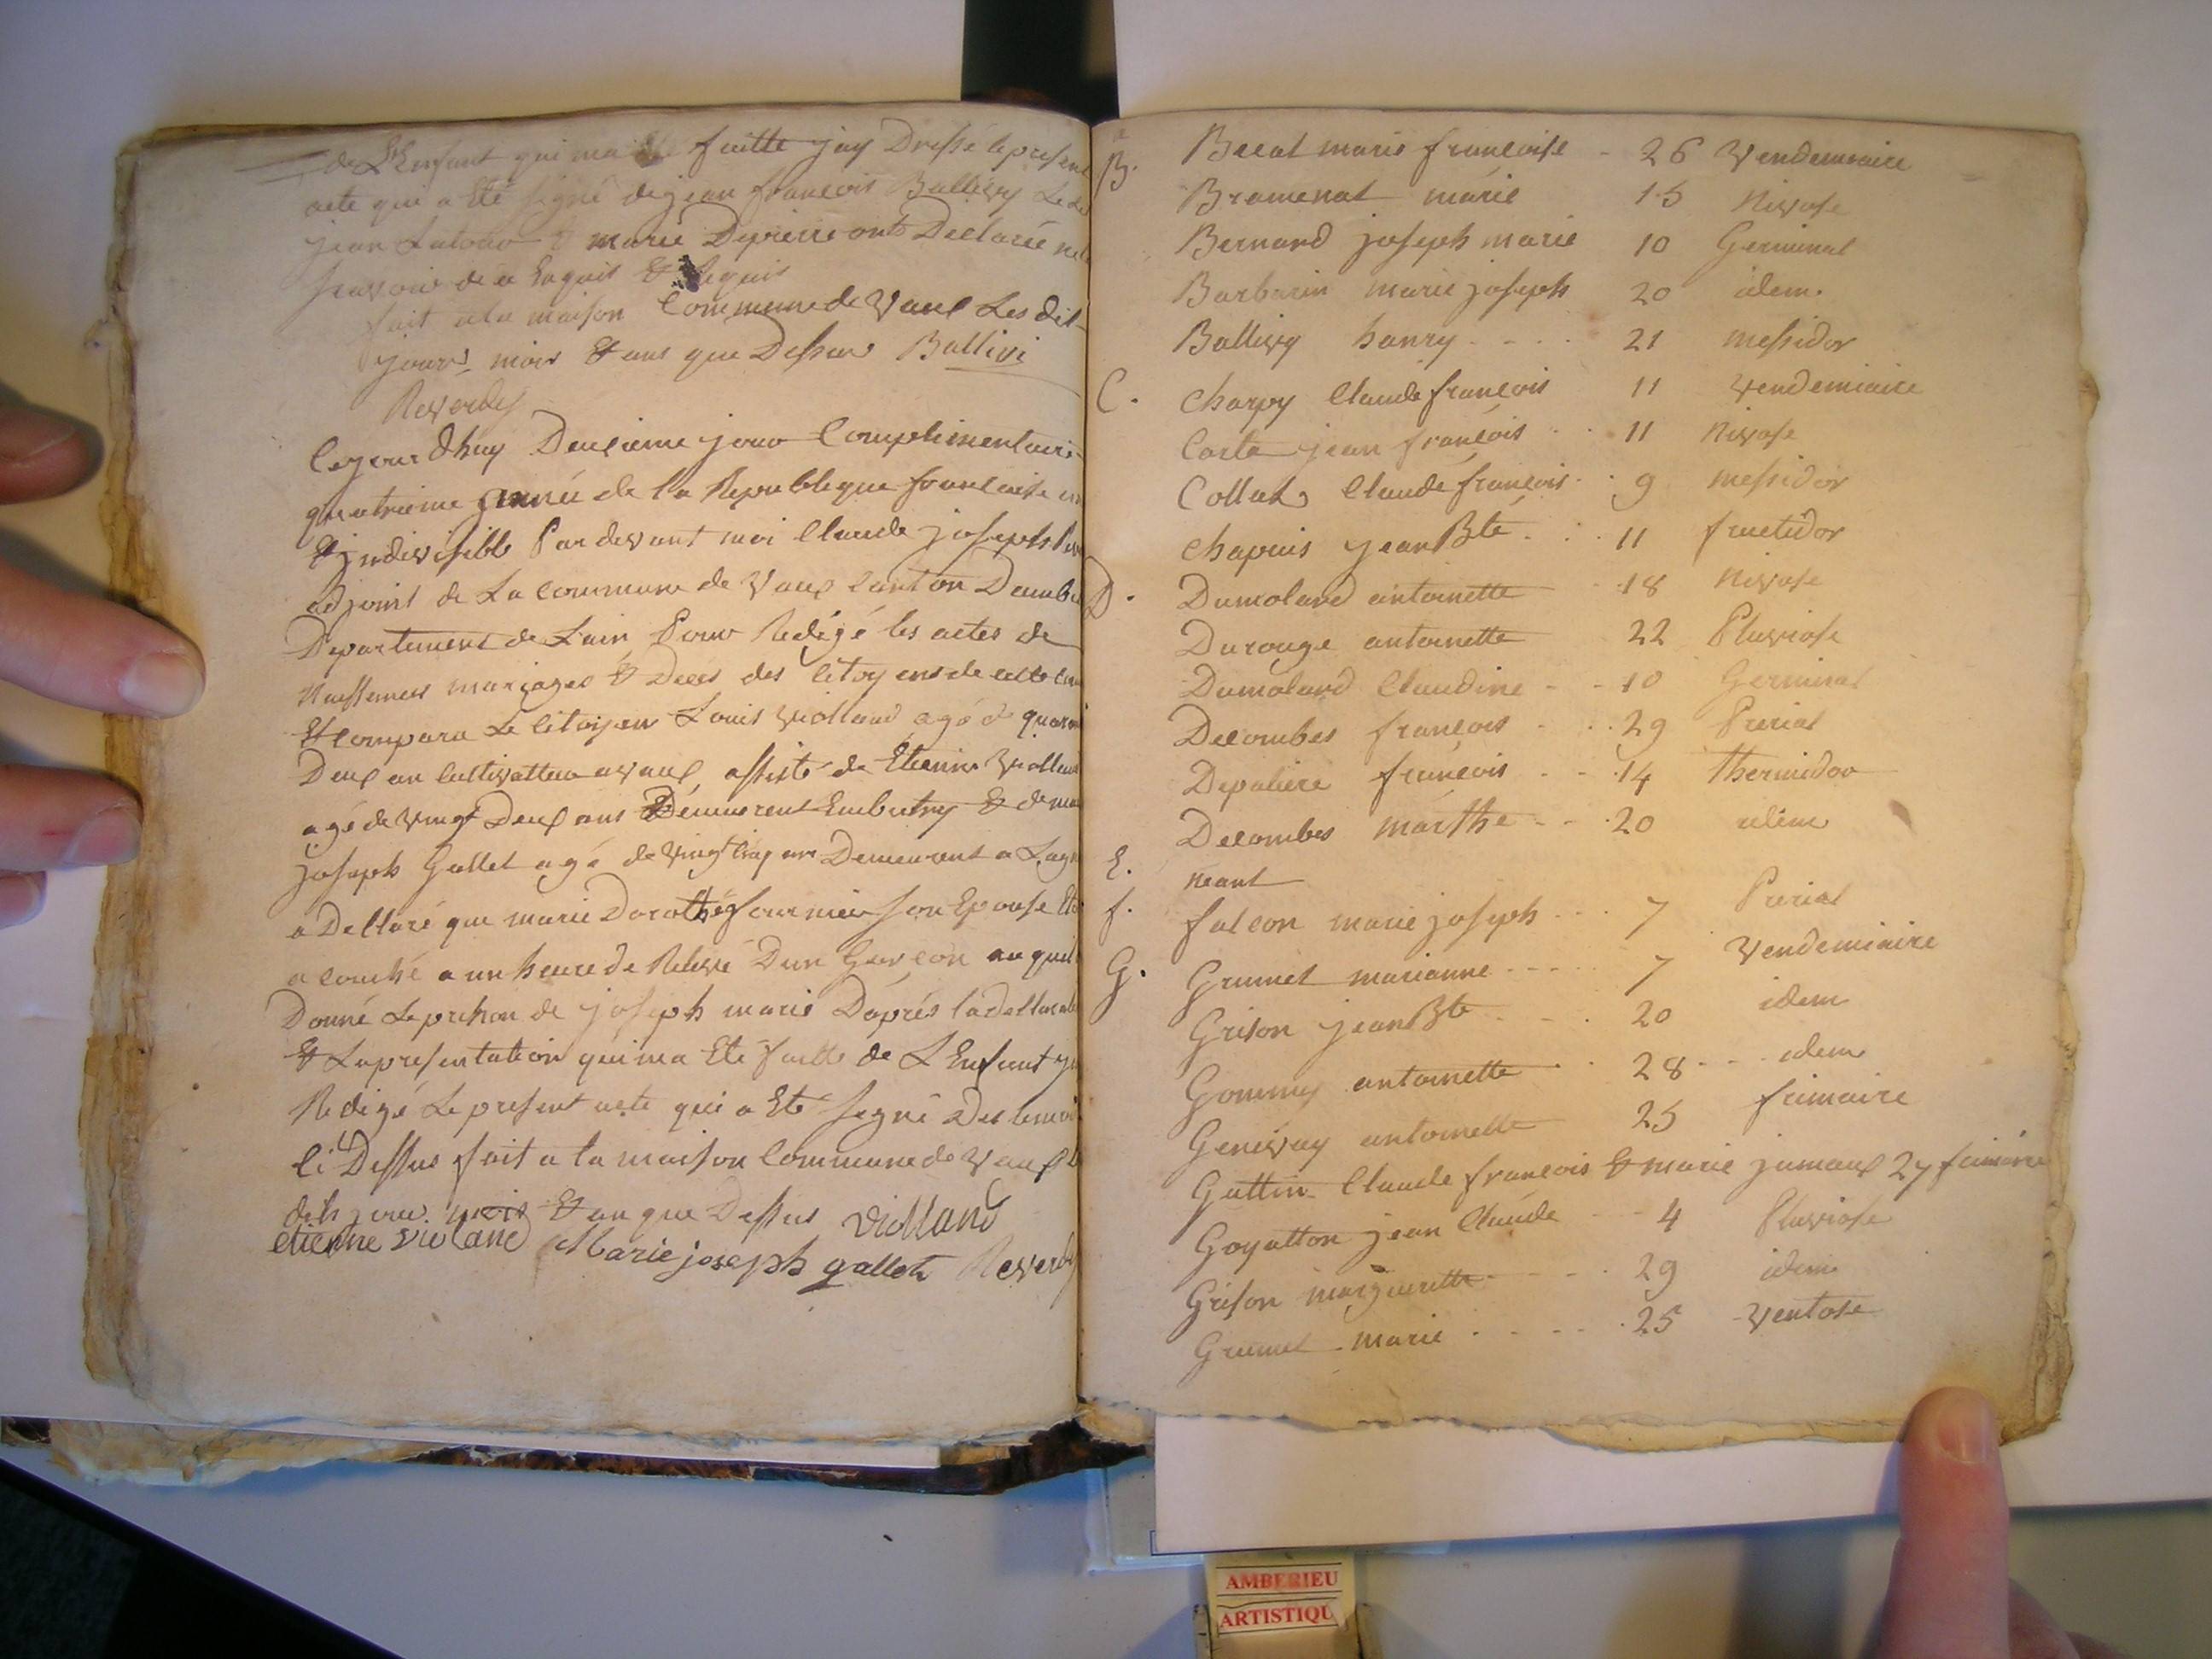 de L'Enfant qui ma faitte jay Dressé le present
acte qui a Eté signé de jean françois Ballivy Le
jean & marie Depierre onts Declaré ne
de ce Enquis & Requis
fait a la maison Commune de Vaux Les dit
jours mois & ans que Dessus Ballivi
Reverdy
Cejourdhuy Deuxieme jour Complimentaire
quatrieme année de la Republique francaise un
& jndivisible Pardevant moi Claude joseph
adjoint de La commune de Vaux canton Dambe
Departement de Lain Pour Redigé les actes de
Naissences mariages & Deces des Citoyens de cette
Et Compara Le Citoyen Louis violland agé d quaran
Deux an Cultivatteur a vaux assisté de Etienne Violland
agé de vingt Deux ans Demeurent & de
joseph Gallet agé de vingt Cinq ans Demeurent a Lagn
a Dellaré que marie Dorothé fournier son Epouse
a couché a un heure de Relevé Dun Garçon au quel
Donné Le prenom de joseph marie Daprés la dellarat
& La presentation qui ma Eté faitte de L Enfant jai
Redigé Le present acte qui a Eté segné Des temoi
Ci Dessus fait a la maison Commune de Vaux
dits jour mois & an que Dessus violland
etienne violand Marie joseph gallet Reverdy
B. Becat marie francoise - 26 Vendemiaire
Bramenat marie 15 Nivose
Bernard joseph marie 10 Germinal
Barbarin marie joseph 20 idem
Ballivy hanry - - - - 21 messidor
C. Charpy Claude françois 11 vendemiaire
Carta jean françois 11 Nivose
Collat Claude françois 9 messidor
Chapuis jean Bte 11 fructidor
D. Dumolard antoinette 18 Nivose
Durouge antoinette 22 Pluviose
Dumolard Claudine - - 10 Germinal
Decombes françois 29 Prerial
Depaliere françois - - 14 Thermidor
Decombes marthe - - 20 idem
E. neant
f. falcon marie joseph - - - 7 Prerial
G. Grumet marianne - - - - 7 Vendemiaire
Grison jean Bte 20 idem
Gommy antoinette 28 - - idem
Genevay antoinette 25 frimaire
Guttin Claude françois & marie jumaux 27 frimaire
Goyatton jean Claude - - 4 Pluviose
Grison marguerette - - - 29 idem
Grumet marie - - - - 25 Ventose
AMBERIEU
ARTISTIQU